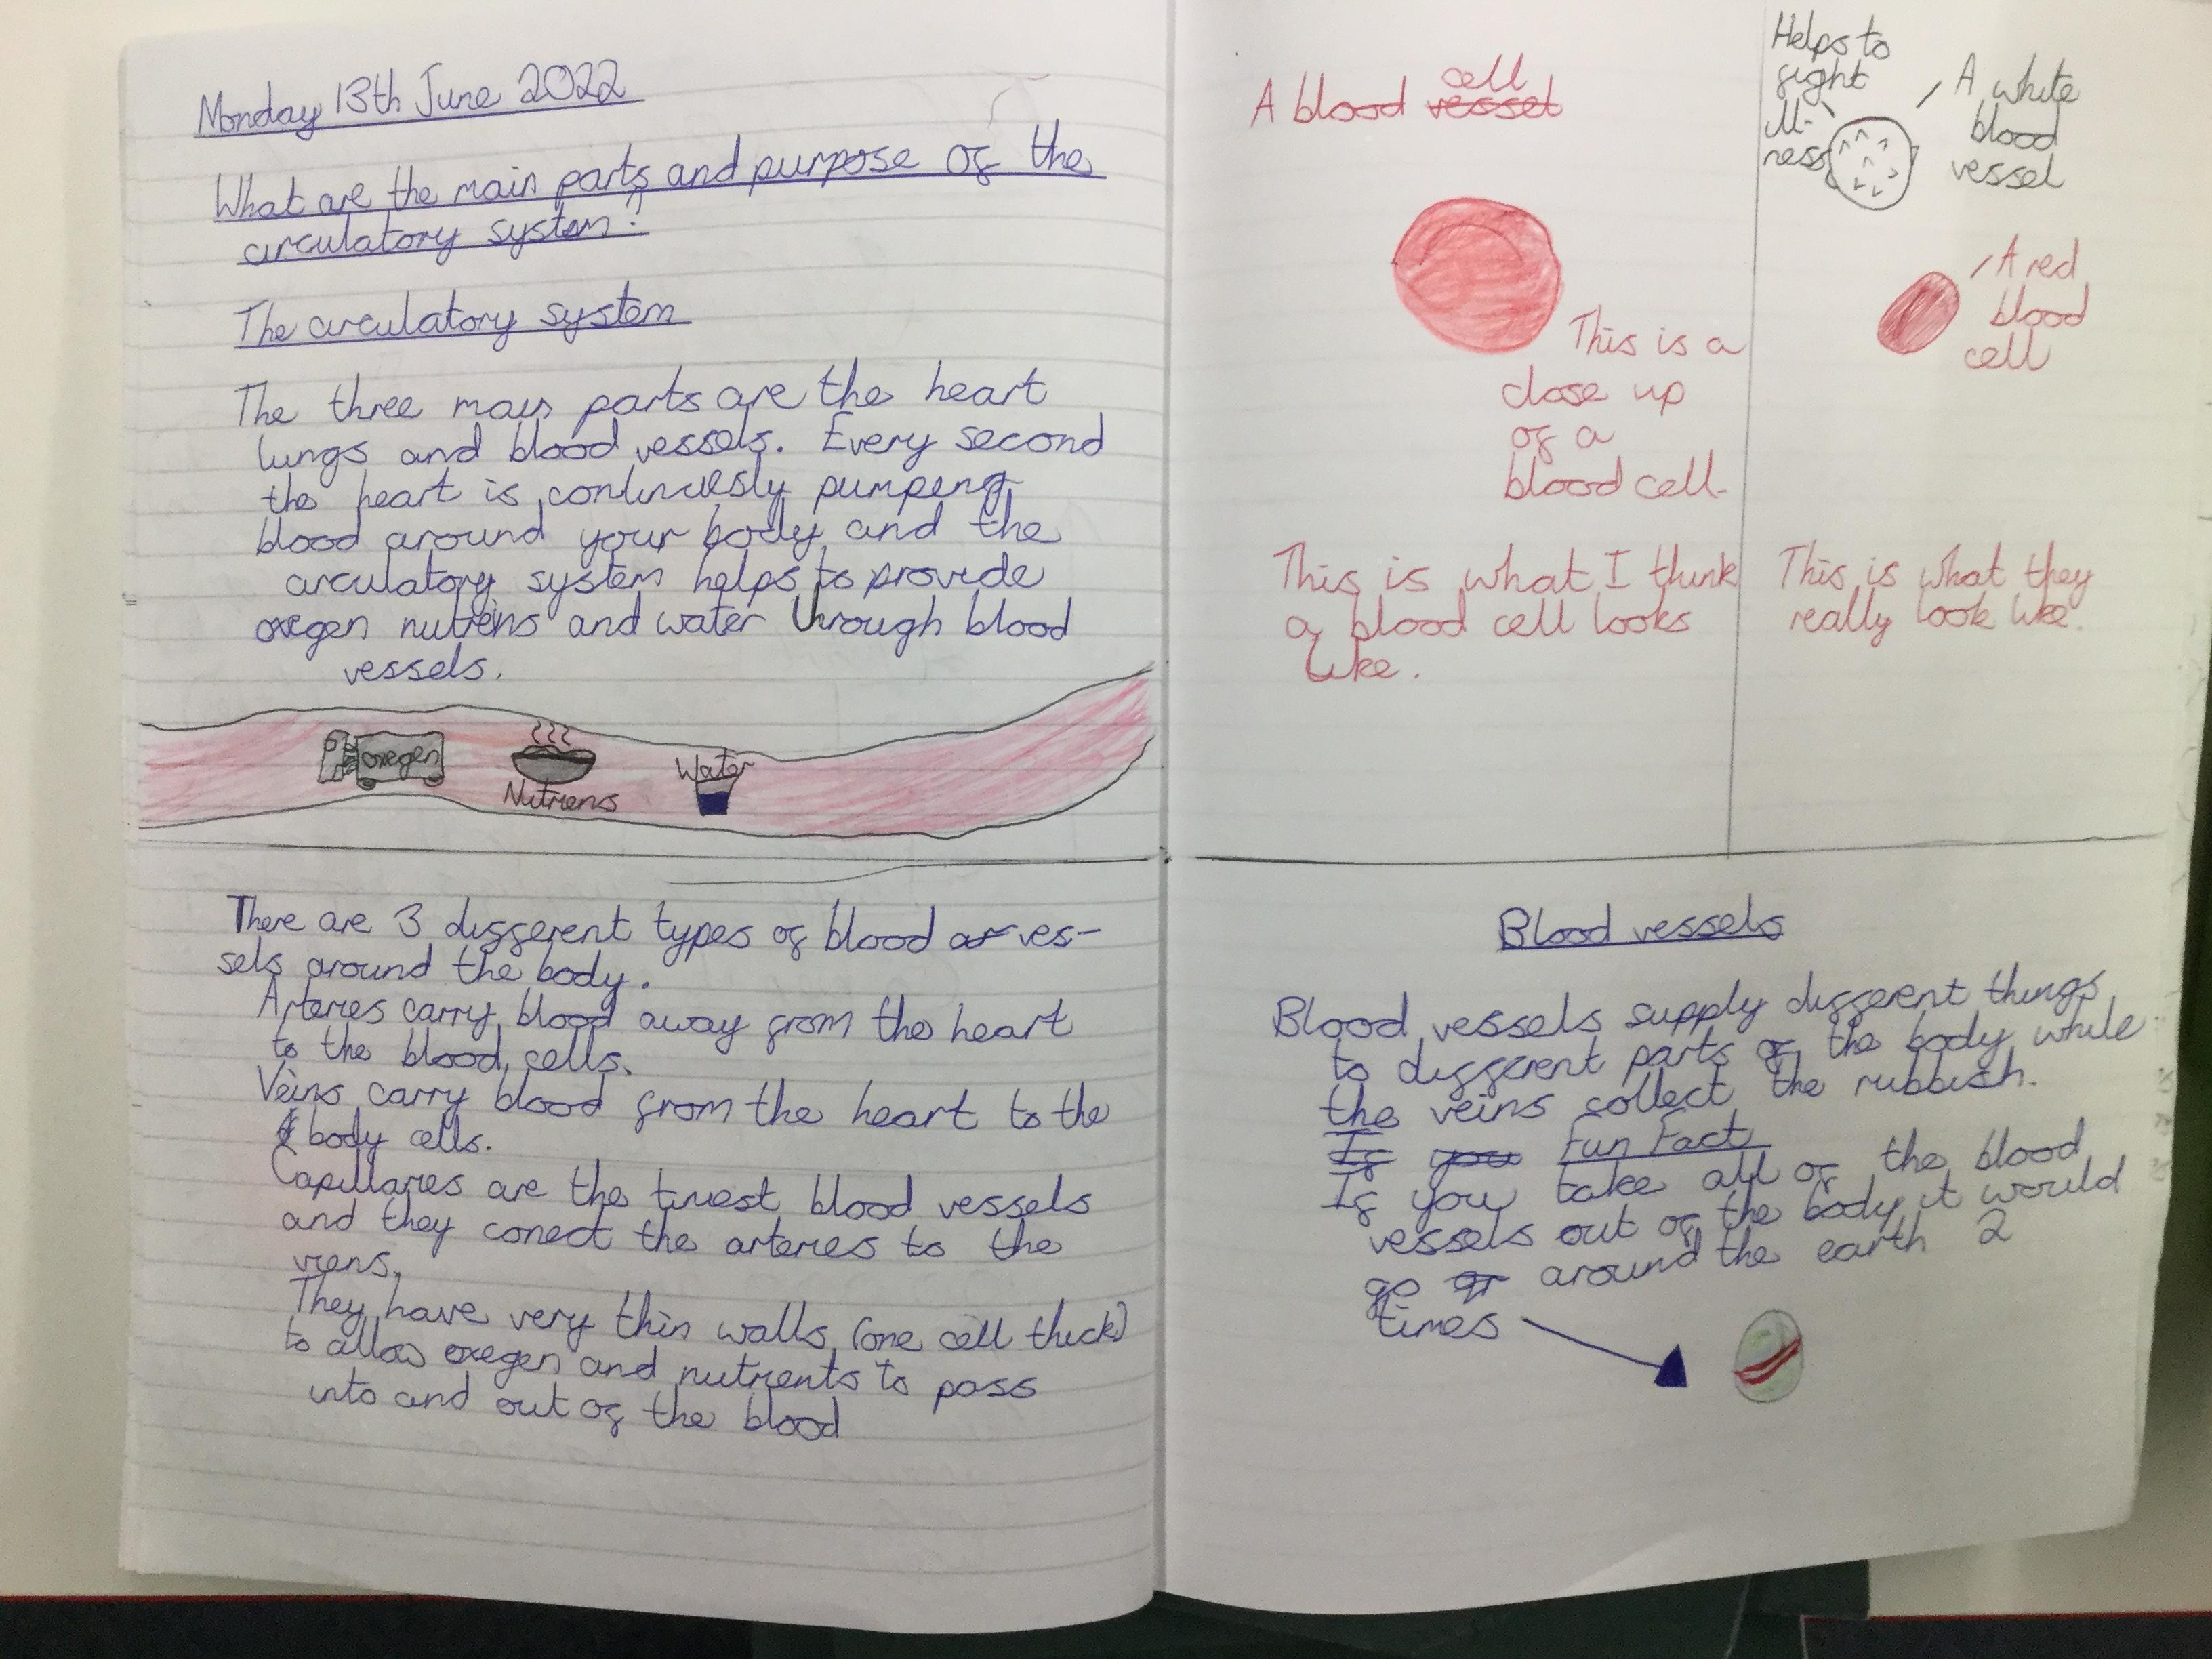 Monday 13th June 2022
What are the main parts and purpose of the
circulatory system?
The circulatory system
The three main parts are the heart
lungs and blood vessels. Every second
the heart is continuesly pumpeng
blood around your body and the
circulatory system helps to provide
oxegen nutriens and water through blood
vessels.
oxegen
Nutriens
Water
There are 3 different types of blood ar ves-
sels around the body.
Arteries carry blood away from the heart
to the blood cells.
Veins carry blood from the heart to the
body cells.
Capillaries are the tiniest blood vessels
and they conect the arteries to the
viens.
They have very thin walls (one cell thick)
to allow oxegen and nutrients to pass
into and out of the blood
A blood vessel cell
This is a
close up
of a
blood cell.
This is what I think
a blood cell looks
like.
Helps to
fight
ill-
ness
A white
blood
vessel
A red
blood
cell
This is what they
really look like.
Blood vessels
Blood vessels supply different things
to different parts of the body while
the veins collect the rubbish.
If you Fun Fact
If you take all of the blood
vessels out of the body it would
go ar around the earth 2
times